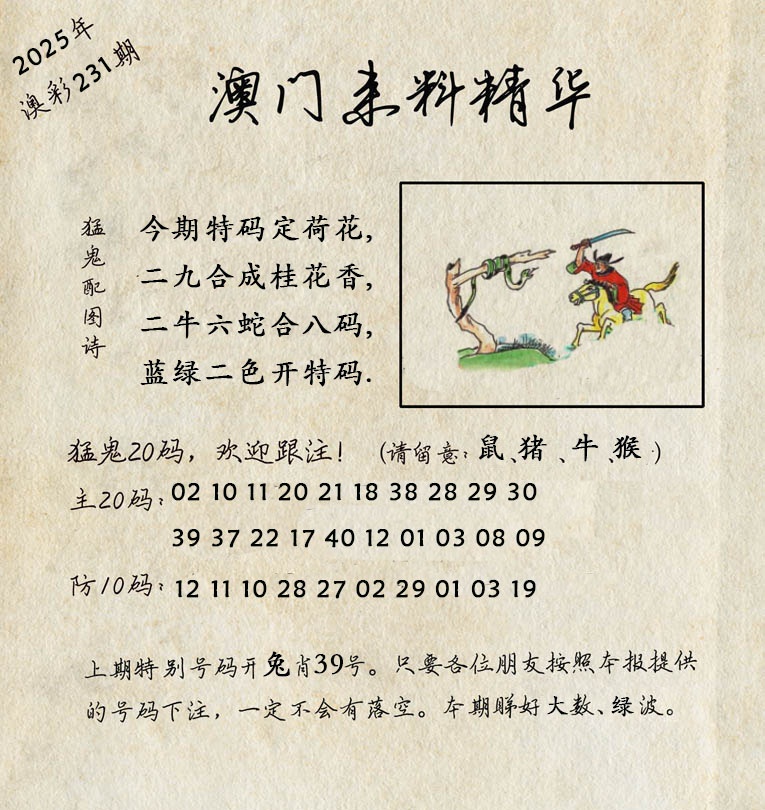 2025年
澳彩231期
澳门来料精华
猛鬼配图诗
今期特码定荷花,
二九合成桂花香,
二牛六蛇合八码,
蓝绿二色开特码.
猛鬼20码，欢迎跟注！（请留意：鼠、猪、牛、猴）
主20码：02 10 11 20 21 18 38 28 29 30
39 37 22 17 40 12 01 03 08 09
防10码：12 11 10 28 27 02 29 01 03 19
上期特别号码开兔肖39号。只要各位朋友按照本报提供
的号码下注，一定不会有落空。本期睇好大数、绿波。